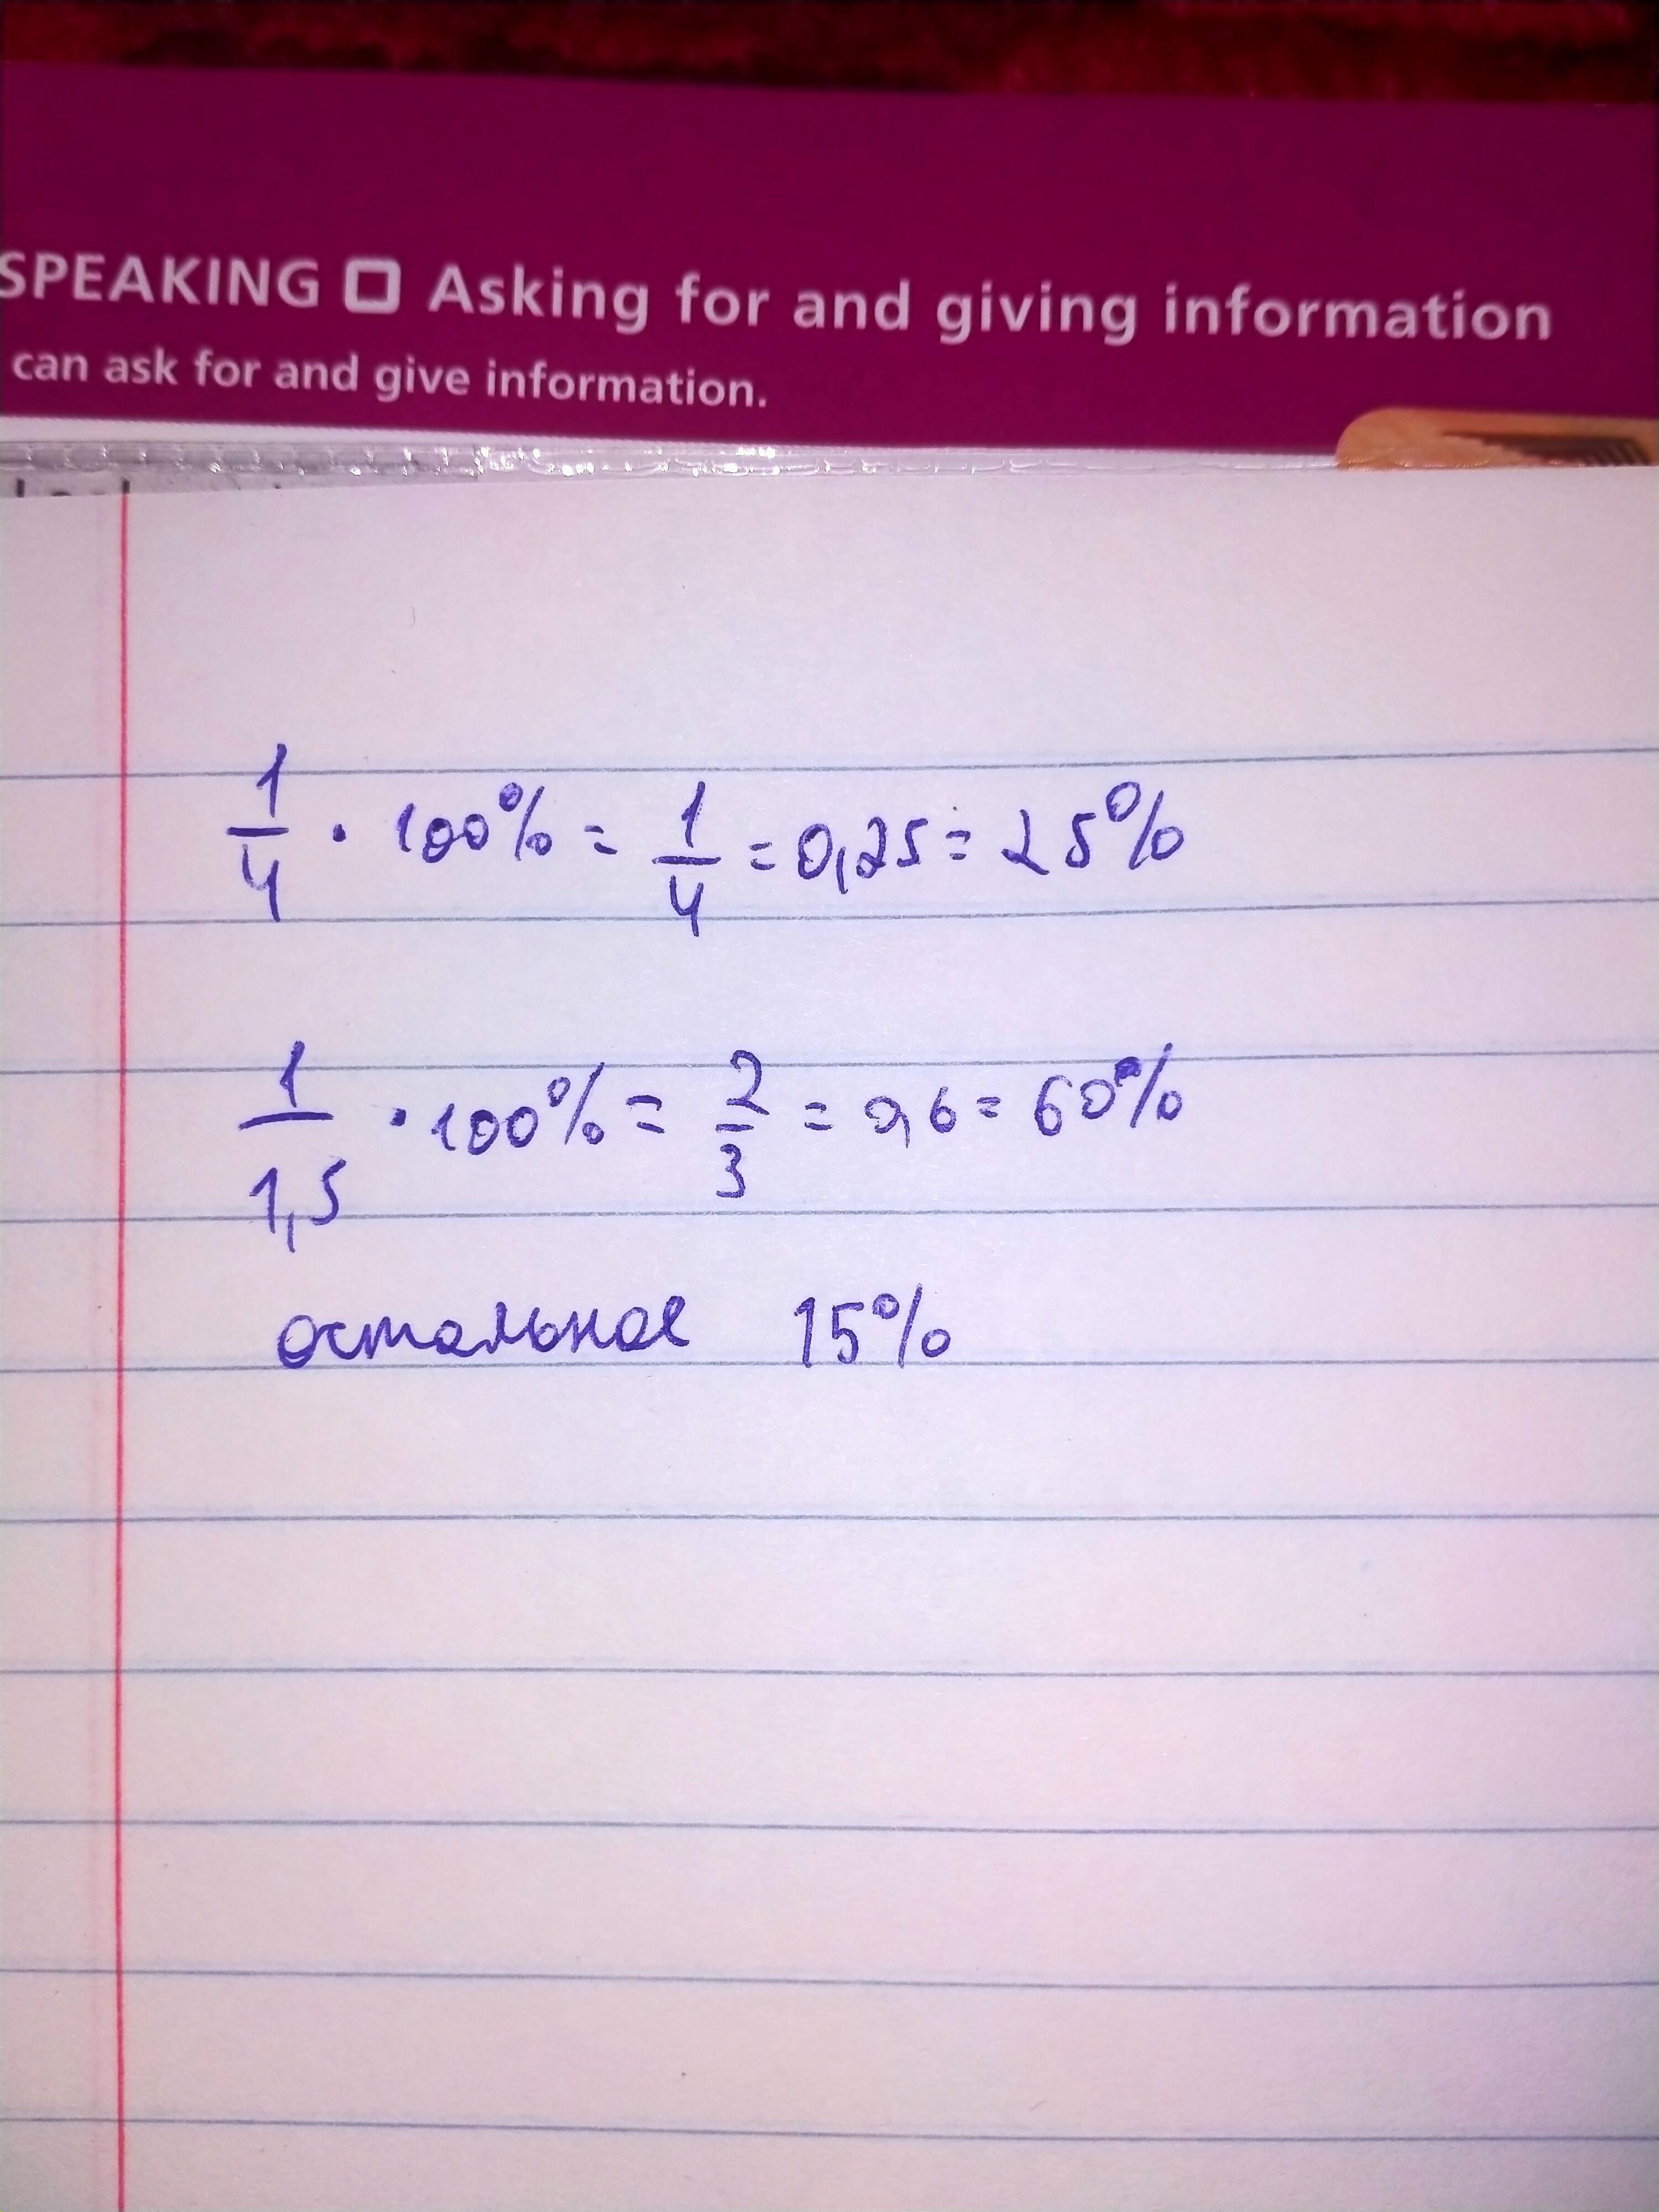 SPEAKING Asking for and giving information
can ask for and give information.
1/4 · 100% = 1/4 = 0,25 = 25%
1/1,5 · 100% = 2/3 = 0,6 = 60%
остальное 15%